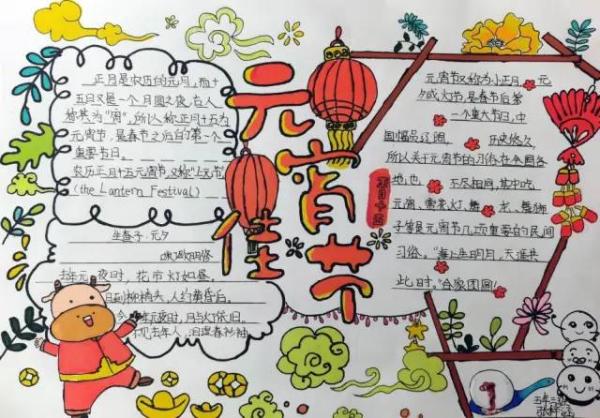 元宵佳节
正月是农历的元月,而十
五日又是一个月圆之夜,古人
称其为"宵",所以称正月十五为
元宵节,是春节之后的第一个
重要节日。
农历正月十五元宵节,又称"上元节"
(the Lantern Festival)
生查子·元夕
去年元夜时,花市灯如昼。
月到柳梢头,人约黄昏后。
今年元夜时,月与灯依旧。
不见去年人,泪湿春衫袖
元宵节又称为小正月、元
夕或灯节,是春节后第
一个重大节日,中
国幅员辽阔,历史悠久
所以关于元宵节的习俗在全国各
地也不尽相同,其中吃
元宵、赏花灯、舞龙、舞狮
子等是元宵节几项重要的民间
习俗。"海上生明月,天涯共
此时。"合家团圆!